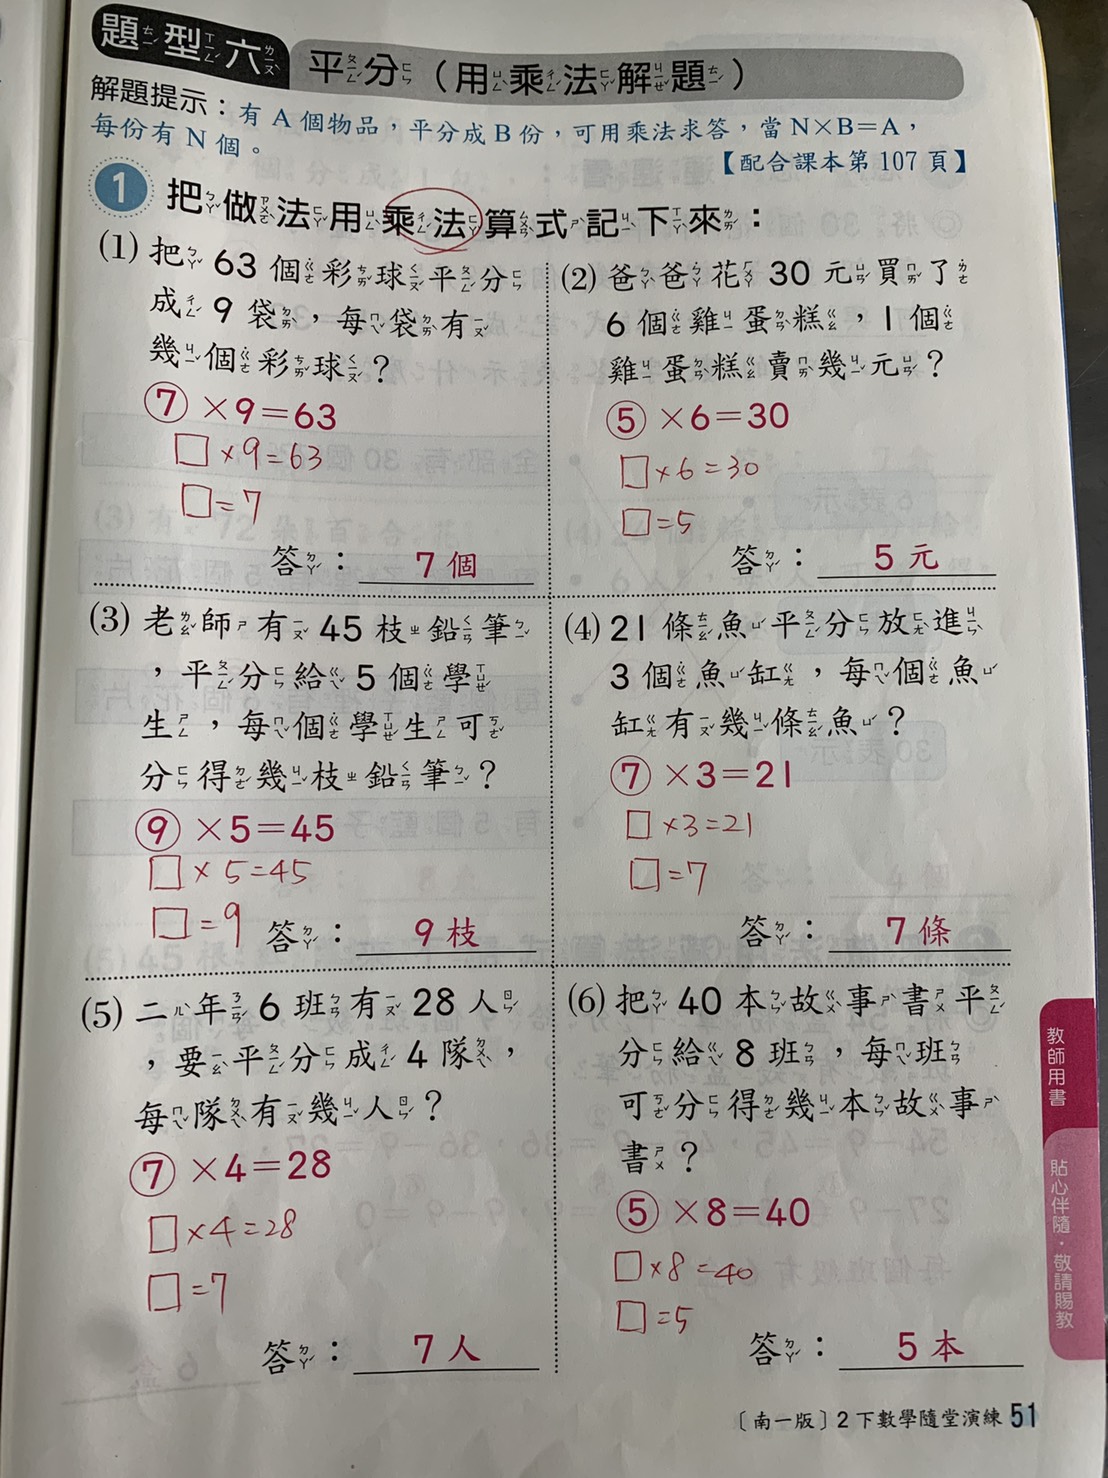 題型六 平分（用乘法解題）
解題提示：有 A 個物品，平分成 B 份，可用乘法求答，當 N×B＝A，
每份有 N 個。
【配合課本第 107 頁】
1 把做法用乘法算式記下來：
(1) 把 63 個彩球平分
成 9 袋，每袋有
幾個彩球？
⑦ ×9＝63
□×9=63
□=7
答：7 個
(2) 爸爸花 30 元買了
6 個雞蛋糕，1 個
雞蛋糕賣幾元？
⑤ ×6＝30
□×6=30
□=5
答：5 元
(3) 老師有 45 枝鉛筆
，平分給 5 個學
生，每個學生可
分得幾枝鉛筆？
⑨ ×5＝45
□×5=45
□=9
答：9 枝
(4) 21 條魚平分放進
3 個魚缸，每個魚
缸有幾條魚？
⑦ ×3＝21
□×3=21
□=7
答：7 條
(5) 二年 6 班有 28 人
，要平分成 4 隊，
每隊有幾人？
⑦ ×4＝28
□×4=28
□=7
答：7 人
(6) 把 40 本故事書平
分給 8 班，每班
可分得幾本故事
書？
⑤ ×8＝40
□×8=40
□=5
答：5 本
教師用書
貼心伴隨．敬請賜教
〔南一版〕2 下數學隨堂演練 51